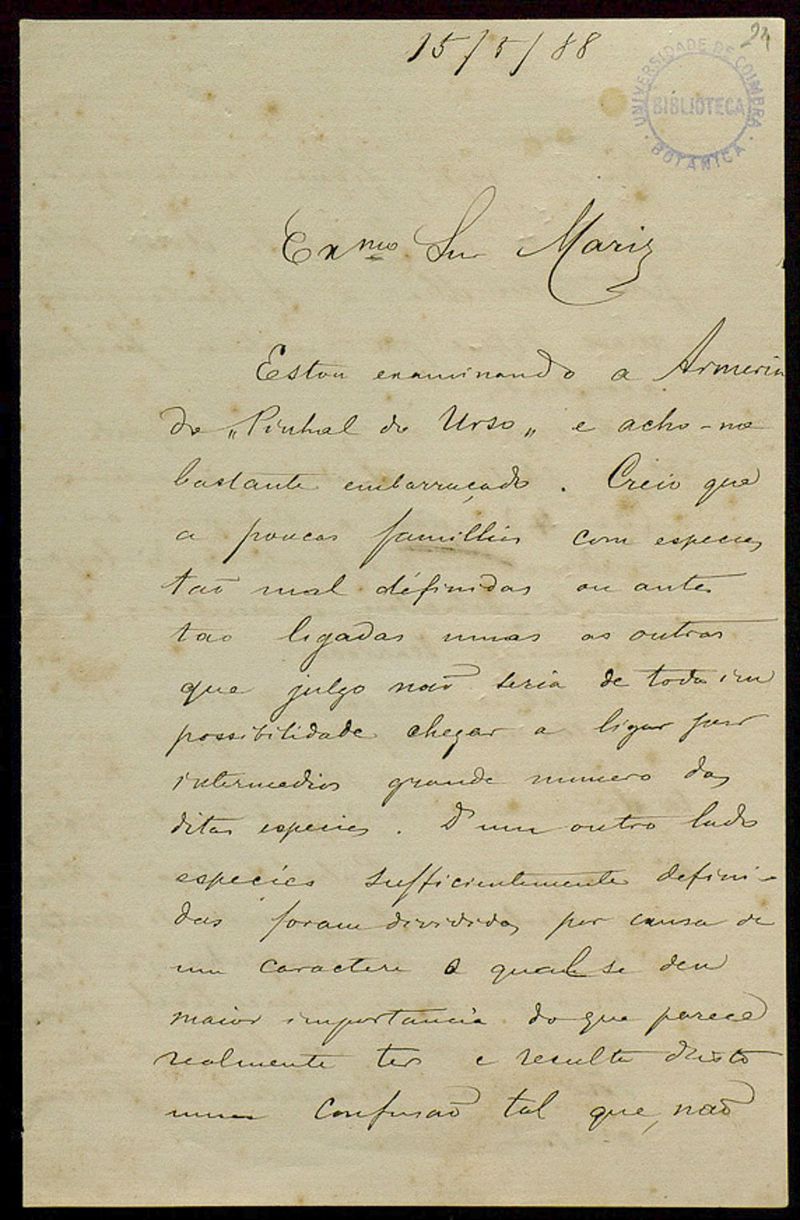 24
15/5/88
UNIVERSIDADE DE COIMBRA
BIBLIOTECA
BOTANICA
Exmo Snr Mariz
Estou examinando a Armeria
do „Pinhal do Urso„ e acho-me
bastante embarraçado. Creio que
a poucas famillias com especies
tão mal définidas ou antes
tao ligadas umas as outras
que julgo não seria de toda im
possibilidade chegar a ligar por
intermedios grande numero das
ditas especies. D'um outro lado
especies sufficientemente defini-
das foram divididas por causa de
um caractere o qual se deu
maior importancia do que parece
realmente ter e resulta disto
uma confusão tal que, não